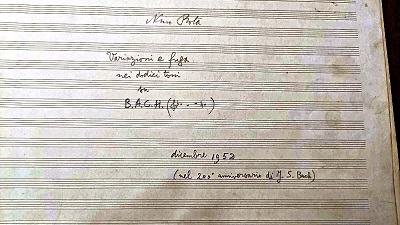 Nino Rota
Variazioni e fuga
nei dodici toni
su
B.A.C.H. (
dicembre 1952
(nel 200° anniversario di J. S. Bach)